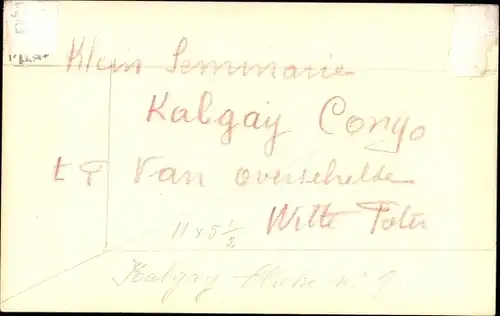 Klein Semmarie
Kalgay Congo
E P Van overschelde
Witte Pater
11 x 5 1/2
Kalgay Cliche n° 9